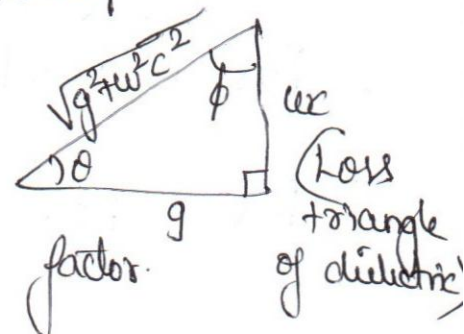 √g²+w²c²
φ
wc
θ
(Loss
triangle
of dielectric)
g
factor.